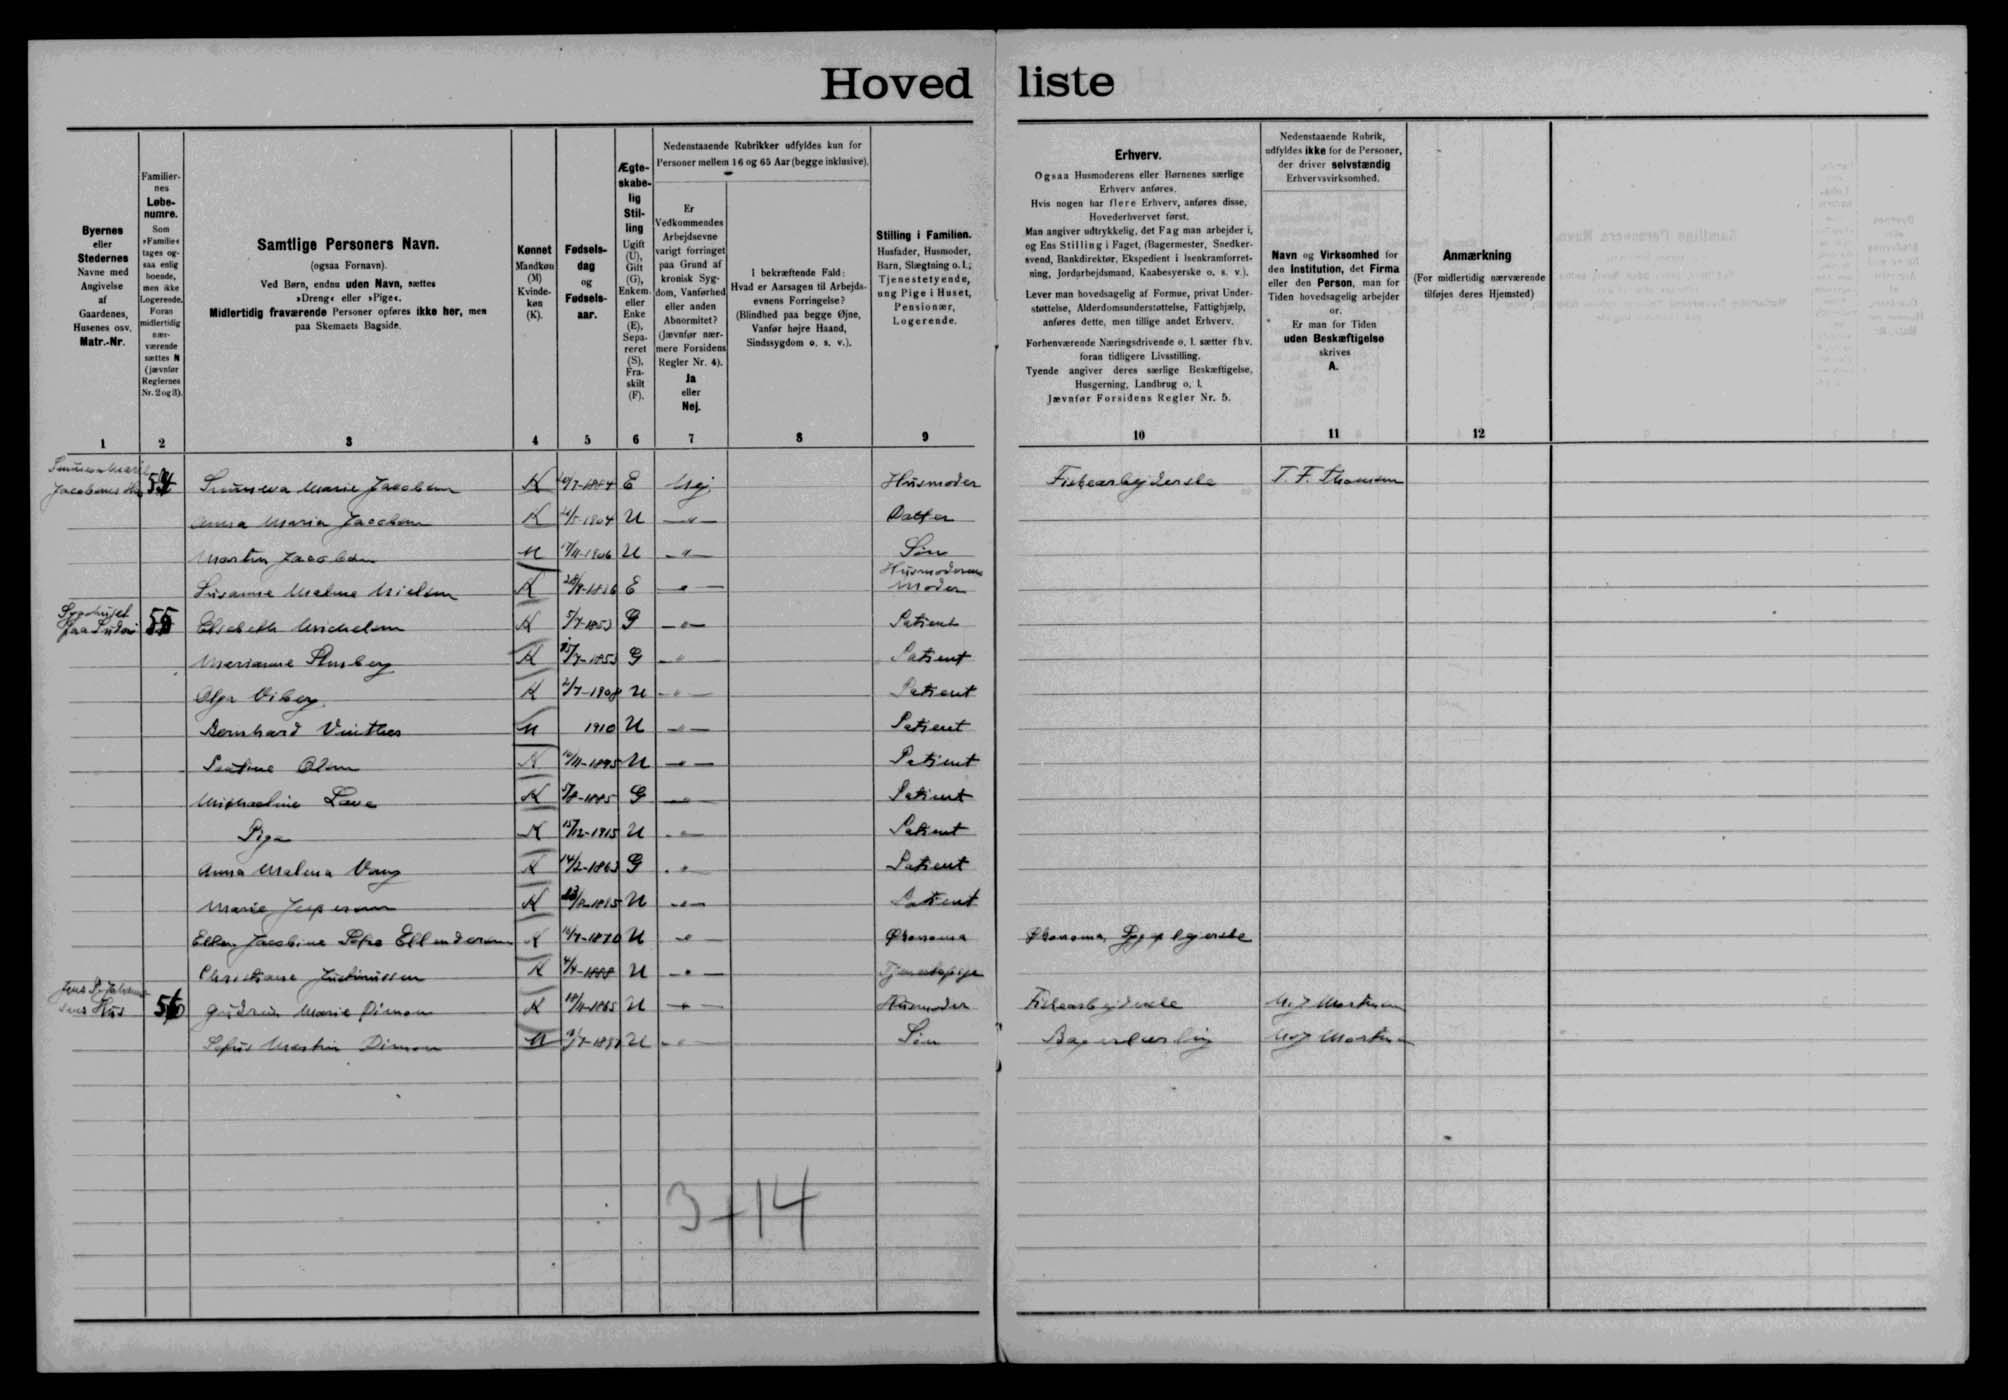 Hovedliste
Byernes
eller
Stedernes
Navne med
Angivelse
af
Gaardenes,
Husenes osv.
Matr.-Nr.
Familier-
nes
Løbe-
numre.
Som
»Familie«
tages og-
saa enlig
boende,
men ikke
Logerende.
Foran
midlertidig
nær-
værende
sættes N
(jævnfør
Reglernes
Nr. 2 og 3).
Samtlige Personers Navn.
(ogsaa Fornavn).
Ved Børn, endnu uden Navn, sættes
»Dreng« eller »Pige«.
Midlertidig fraværende Personer opføres ikke her, men
paa Skemaets Bagside.
Kønnet
Mandkøn
(M)
Kvinde-
køn
(K).
Fødsels-
dag
og
Fødsels-
aar.
Ægte-
skabe-
lig
Stil-
ling
Ugift
(U),
Gift
(G),
Enkem.
eller
Enke
(E),
Sepa-
reret
(S),
Fra-
skilt
(F).
Nedenstaaende Rubrikker udfyldes kun for
Personer mellem 16 og 65 Aar (begge inklusive).
Er
Vedkommendes
Arbejdsevne
varigt forringet
paa Grund af
kronisk Syg-
dom, Vanførhed
eller anden
Abnormitet?
(Jævnfør nær-
mere Forsidens
Regler Nr. 4).
Ja
eller
Nej.
I bekræftende Fald:
Hvad er Aarsagen til Arbejds-
evnens Forringelse?
(Blindhed paa begge Øjne,
Vanfør højre Haand,
Sindssygdom o. s. v.).
Stilling i Familien.
Husfader, Husmoder,
Barn, Slægtning o. l.;
Tjenestetyende,
ung Pige i Huset,
Pensionær,
Logerende.
Erhverv.
Ogsaa Husmoderens eller Børnenes særlige
Erhverv anføres.
Hvis nogen har flere Erhverv, anføres disse,
Hovederhvervet først.
Man angiver udtrykkelig, det Fag man arbejder i,
og Ens Stilling i Faget, (Bagermester, Snedker-
svend, Bankdirektør, Ekspedient i Isenkramforret-
ning, Jordarbejdsmand, Kaabesyerske o. s. v.).
Lever man hovedsagelig af Formue, privat Under-
støttelse, Alderdomsunderstøttelse, Fattighjælp,
anføres dette, men tillige andet Erhverv.
Forhenværende Næringsdrivende o. l. sætter fhv.
foran tidligere Livsstilling.
Tyende angiver deres særlige Beskæftigelse,
Husgerning, Landbrug o. l.
Jævnfør Forsidens Regler Nr. 5.
Nedenstaaende Rubrik,
udfyldes ikke for de Personer,
der driver selvstændig
Erhvervsvirksomhed.
Navn og Virksomhed for
den Institution, det Firma
eller den Person, man for
Tiden hovedsagelig arbejder
for.
Er man for Tiden
uden Beskæftigelse
skrives
A.
Anmærkning
(For midlertidig nærværende
tilføjes deres Hjemsted)
1 2 3 4 5 6 7 8 9 10 11 12
54 Marie Jacobsen K E Nej Husmoder Fiskearbejderske T. F. Thomsen
Anna Maria Jacobsen K 1904 U Datter
Martin Jacobsen M 1906 U Søn
Husmoderens
Susanne Malene Nielsen K E Moder
Sygehuset
paa 55 Elsebeth Michelsen K 1853 G Patient
Marianne K 1853 G Patient
Olga Viberg K 1908 U Patient
Bernhard Vinther M 1910 U Patient
Olsen K 1895 U Patient
Michaeline K 1885 G Patient
Pige K 15/12-1915 U Patient
Anna Malena Vang K 14/2-1863 G Patient
Marie Jespersen K U Patient
Ellen Jacobine Ellendersen K 1870 U Økonoma Økonoma, Sygeplejerske
Christiane Justinussen K 1888 U Tjenestepige
Hus 56 Gudrun Marie Dimon K 1865 U Husmoder Fiskearbejderske Mortensen
Sofus Martin Dimon M U Søn Bagerlærling Mortensen
3+14